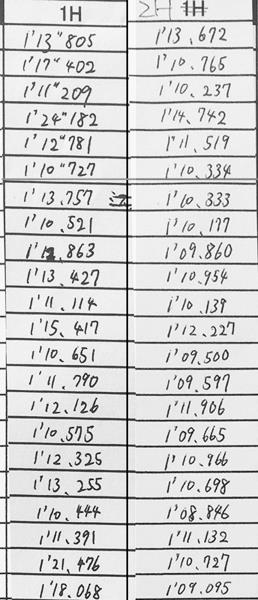 1H 2H 1H
1'13"805 1'13.672
1'17"402 1'10.765
1'11"209 1'10.237
1'24"182 1'14.742
1'12"781 1'11.519
1'10"727 1'10.334
1'13.757 1'10.333
1'10.521 1'10.177
1'12.863 1'09.860
1'13.427 1'10.954
1'11.114 1'10.139
1'15.417 1'12.227
1'10.651 1'09.500
1'11.790 1'09.597
1'12.126 1'11.906
1'10.575 1'09.665
1'12.325 1'10.966
1'13.255 1'10.698
1'10.444 1'08.846
1'11.391 1'11.132
1'21.476 1'10.727
1'18.068 1'09.095